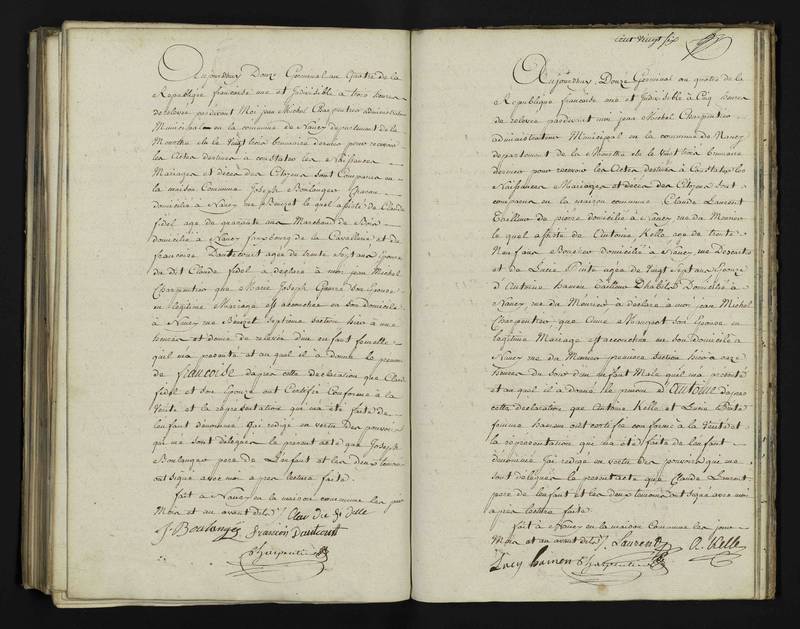 Aujourdhuy Douze Germinal an quatre de la
Republique françoise une et Indivisible a trois heures
de relevée pardevant Moi jean Michel Charpentier administrateur
Municipal en la commune de Nancy departement de la
Meurthe elu le Vingt trois brumaire dernier pour recevoir
les Actes destinés a constater les Naissances
Mariages et décès des Citoyens sont Comparus en
la maison Commune Joseph Boulanger
domicilié à Nancy rue lequel assisté de Claude
fidel agé de quarante ans Marchand de Bois
domicilié à Nancy faubourg de la et de
francoise Dautecourt agée de trente Sept ans Epouse
du dit Claude fidel a déclaré à moi jean Michel
Charpentier que Marie Joseph son Epouse
en legitime Mariage est accouchée en son domicile
à Nancy rue septième section hier à une
heure et demie de relevée d'un enfant femelle
quil ma présenté et au quel il à donné le prenom
de françoise dapres cette declaration que Claude
fidel et son Epouze ont Certifié Conforme à la
Verité et la représentation qui ma été faite de
lenfant dénommé Jai redigé en vertu des pouvoirs
qui me sont délégués le présent acte que Joseph
Boulanger pere de L'enfant et les deux temoins
ont signé avec moi apres lecture faite
fait à Nancy en la maison commune les jour
Mois et an avant dits
J. Boulanger francois Dautecourt
Charpentier
cent vingt six
Aujourdhuy Douze Germinal an quatre de la
Republique françoise une et Indivisible à Cinq heures
de relevée pardevant moi jean Michel Charpentier
administrateur Municipal en la commune de Nancy
departement de la Meurthe elu le vingt trois brumaire
dernier pour recevoir les Actes destinés à Constater les
Naissances Mariages et decès des Citoyens sont
comparus en la maison commune Claude Laurent
Tailleur de pierre domicilié à Nancy rue du
le quel assisté de Antoine Kelle agé de trente
Neuf ans Boucher domicilié à Nancy rue
et de Lucie agée de Vingt Sept ans Epouze
d'Antoine hamen Tailleur D'habits Domicilié à
Nancy rue du a declaré à moi jean Michel
Charpentier que Anne son Epouse en
legitime Mariage est accouchée en son domicile à
Nancy rue du premiere section hier à onze
heures du Soir d'un enfant Male quil ma présenté
et au quel il a donné le prenom d'Antoine dapres
cette declaration que Antoine Kelle et Lucie
femme hamen ont certifié conforme à la Verité et
la représentation qui ma été faite de lenfant
dénommé Jai redigé en vertu des pouvoirs qui me
sont délégués le present acte que Claude Laurent
pere de lenfant et les deux temoins ont signé avec moi
apres lecture faite
fait à Nancy en la maison Commune les jour
Mois et an avant dits J. Laurent A. Kelle
Lucy hamen Charpentier